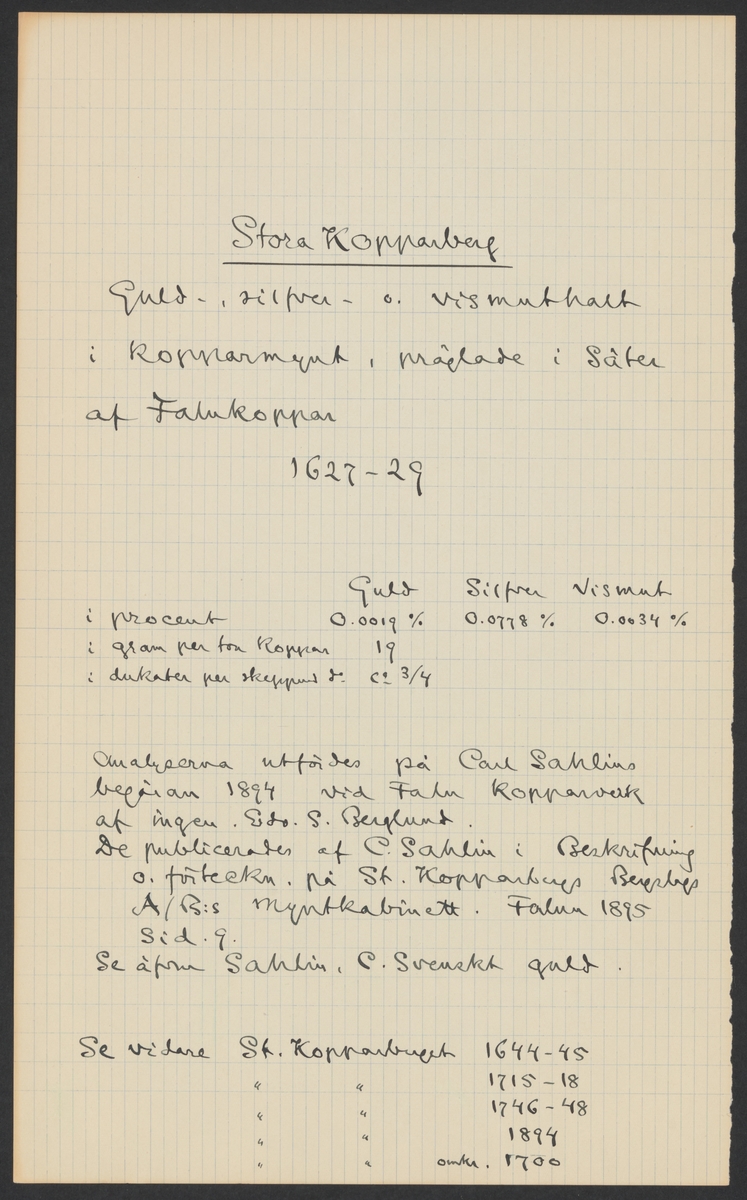 Stora Kopparberg
Guld-, silfver- o. vismuthalt
i kopparmynt, präglade i Säter
af Falukoppar
1627-29
Guld Silfver Vismut
i procent 0.0019 % 0.0778 % 0.0034 %
i gram per ton koppar 19
i dukater per skeppund d:o c:a 3/4
Analyserna utfördes på Carl Sahlins
begäran 1894 vid Falu Kopparverk
af ingen. Edv. S. Berglund.
De publicerades af C. Sahlin i Beskrifning
o. förteckn. på St. Kopparbergs Bergslags
A/B:s Myntkabinett. Falun 1895
Sid. 9.
Se äfven Sahlin, C. Svenskt guld.
Se vidare St. Kopparberget 1644-45
" " 1715-18
" " 1746-48
" " 1894
" " omkr. 1700